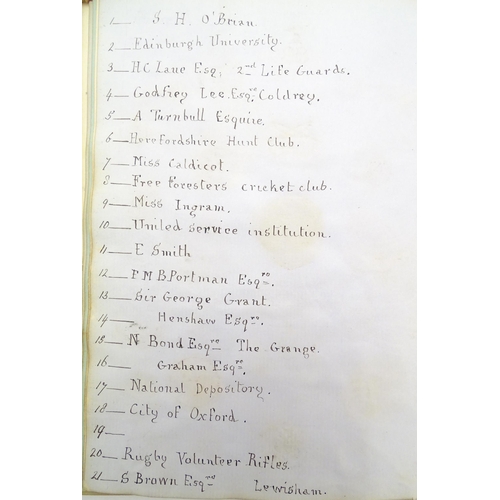 1— S. H. O'Brian.
2— Edinburgh University.
3— H C Lane Esq, 2nd Life Guards.
4— Godfrey Lee Esqre, Coldrey.
5— A Turnbull Esquire.
6— Herefordshire Hunt Club.
7— Miss Caldicot.
8— Free Foresters cricket club.
9— Miss Ingram.
10— United Service institution.
11— E Smith
12— F M B Portman Esqre.
13— Sir George Grant.
14— Henshaw Esqre.
15— N Bond Esqre The Grange.
16— Graham Esqre.
17— National Depository.
18— City of Oxford.
19—
20— Rugby Volunteer Rifles.
21— S Brown Esqre Lewisham.